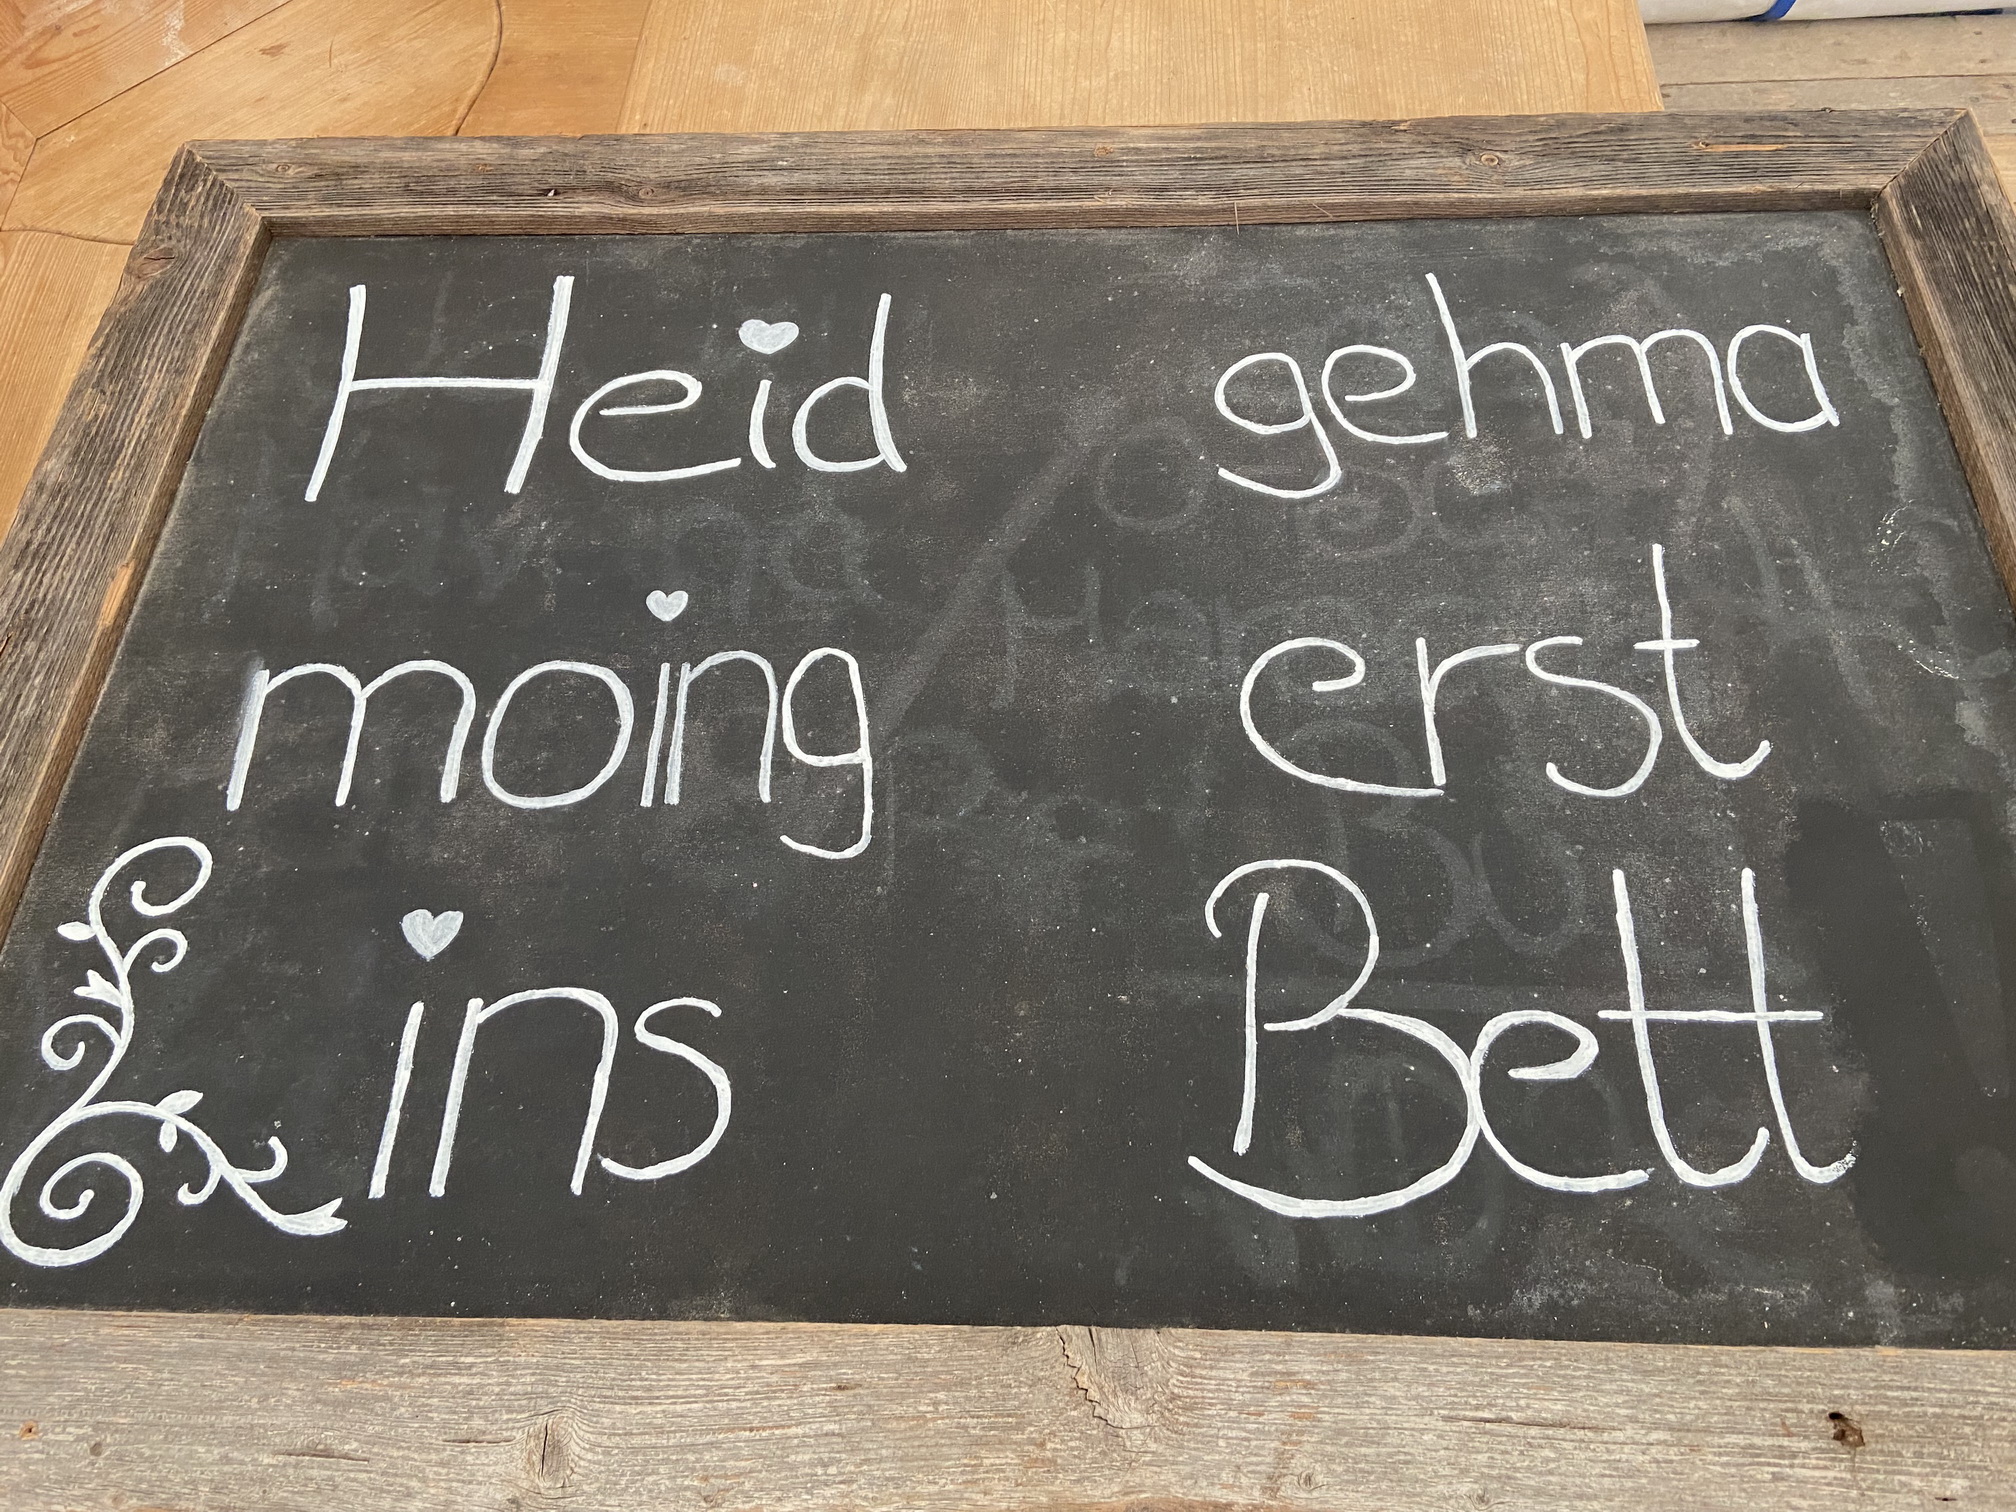 Heid gehma
moing erst
ins Bett